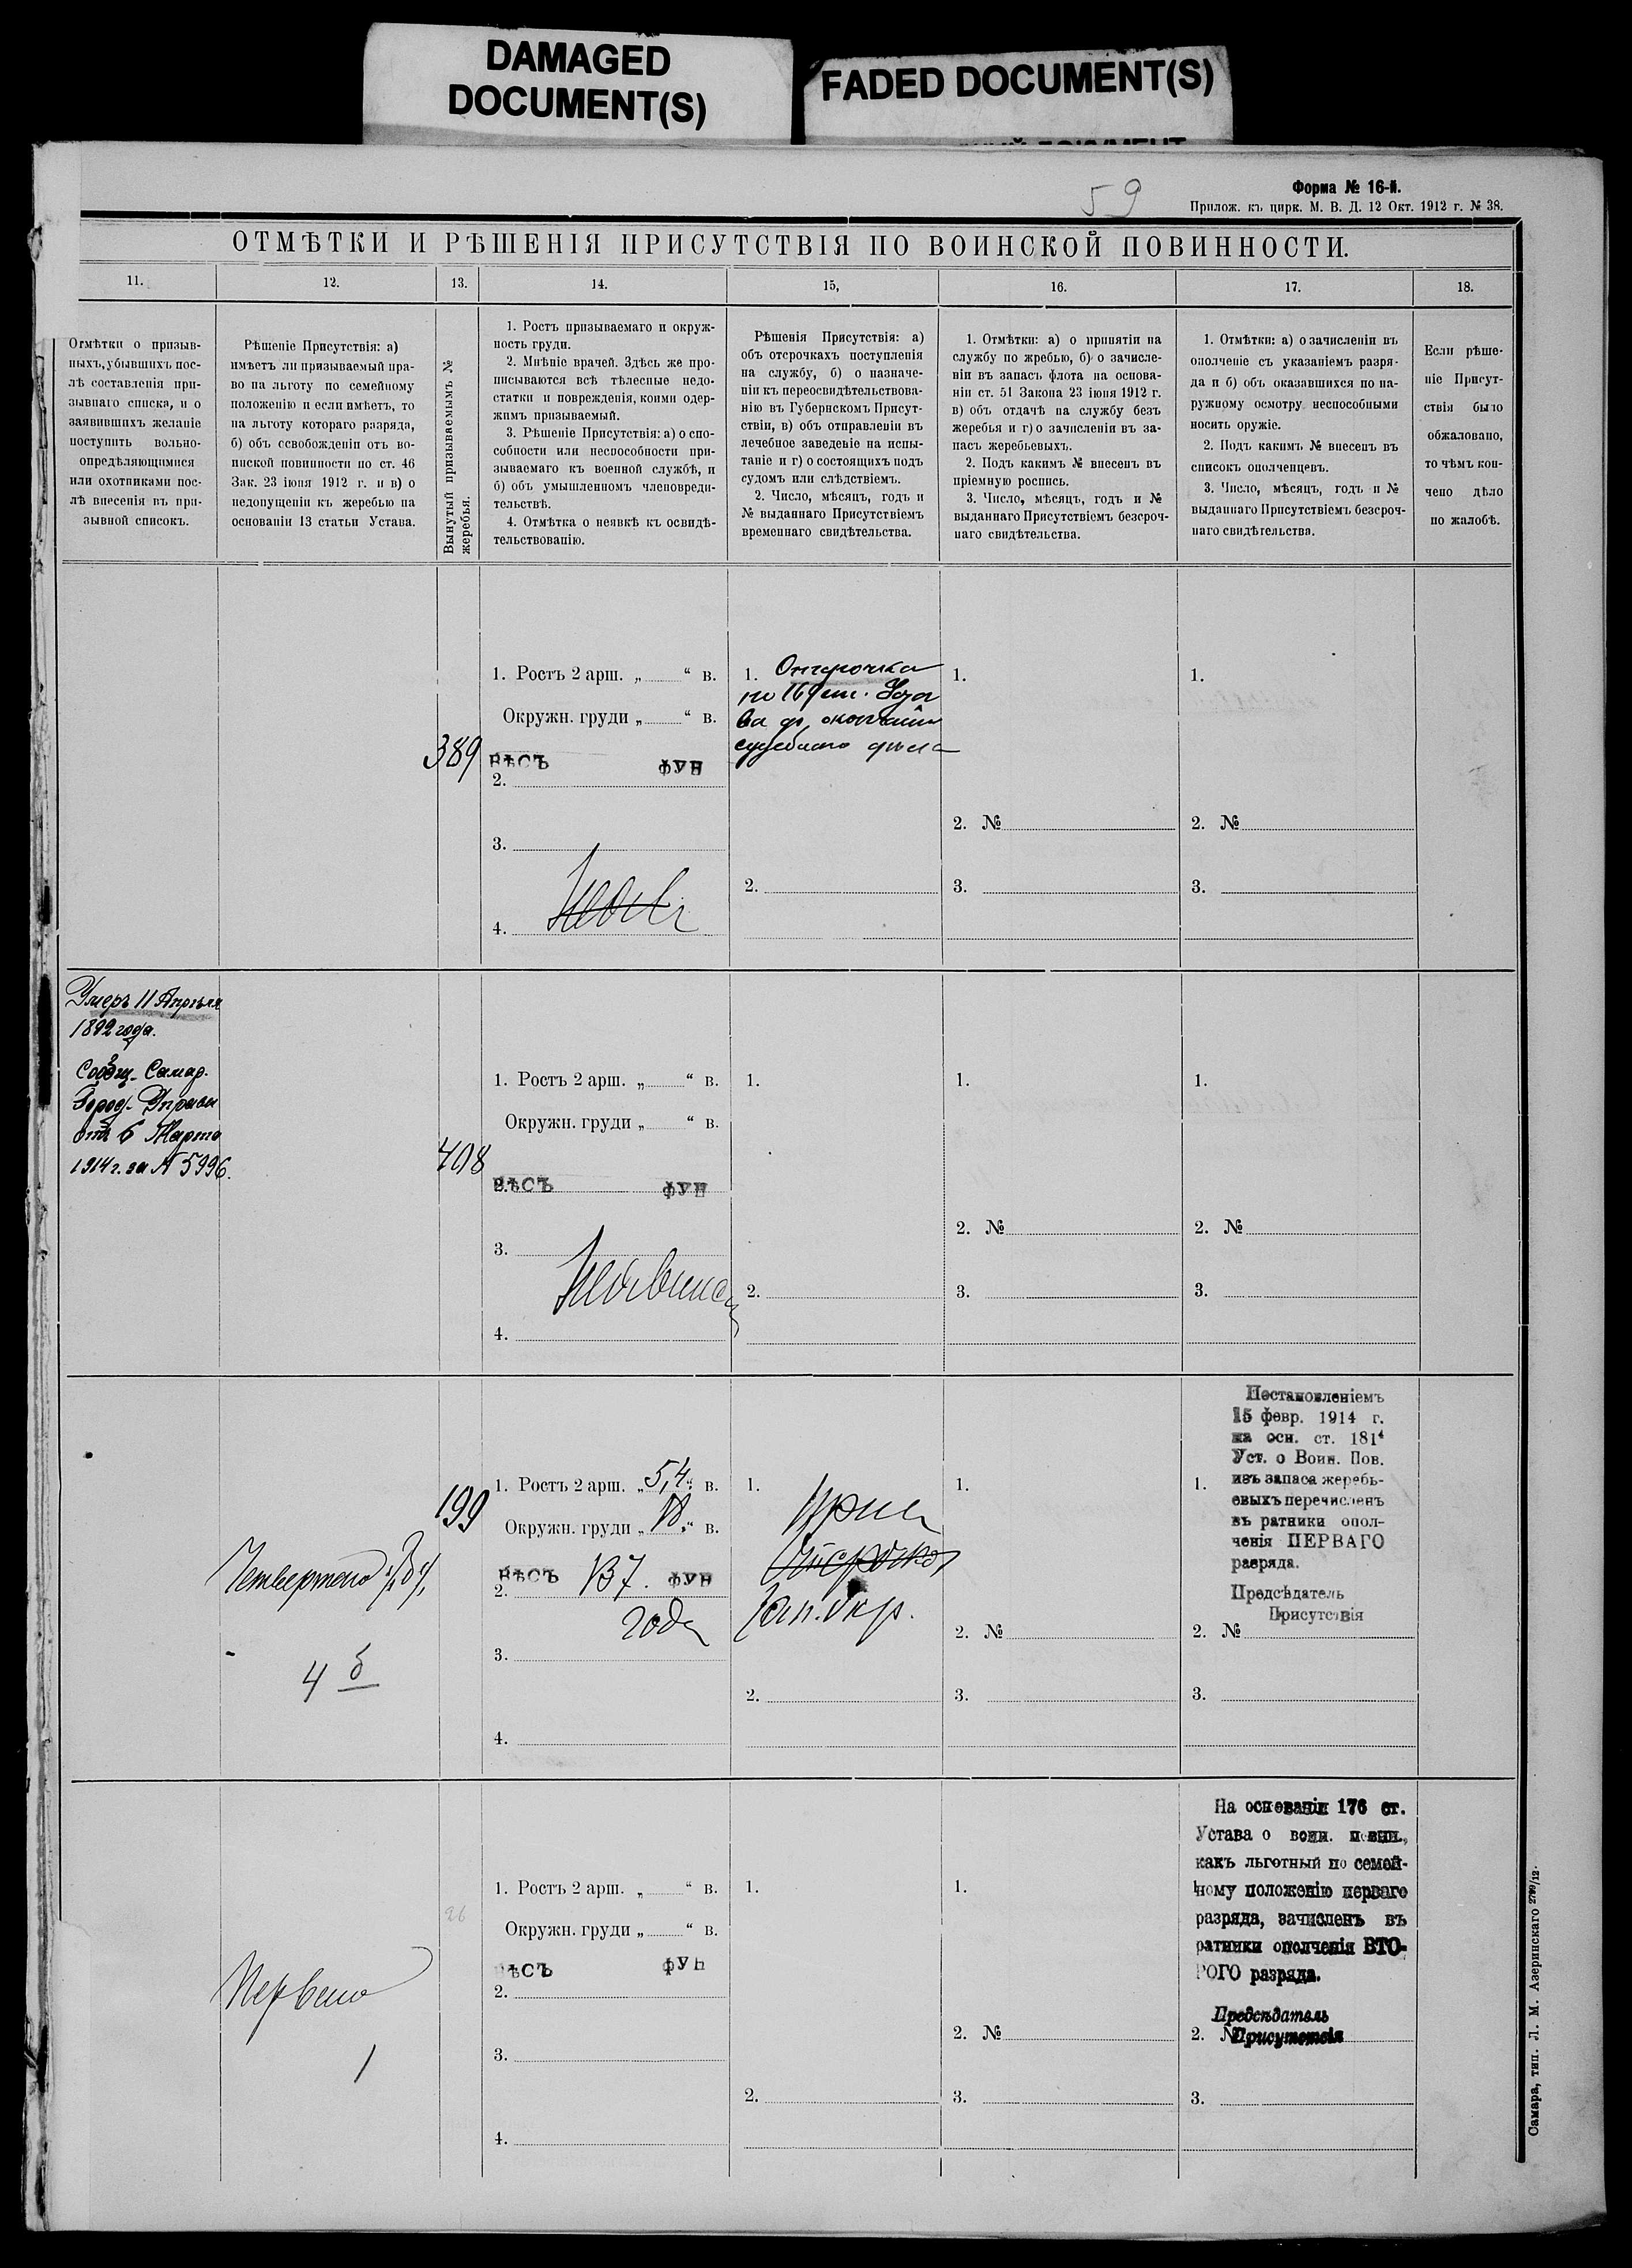 DAMAGED
DOCUMENT(S)
FADED DOCUMENT(S)
59
Форма № 16-й.
Прилож. къ цирк. М. В. Д. 12 Окт. 1912 г. № 38.
ОТМѢТКИ И РѢШЕНІЯ ПРИСУТСТВІЯ ПО ВОИНСКОЙ ПОВИННОСТИ.
11.
12.
13.
14.
15,
16.
17.
18.
Отмѣтки о призыв-
ныхъ, убывшихъ пос-
лѣ составленія при-
зывнаго списка, и о
заявившихъ желаніе
поступить вольно-
опредѣляющимися
или охотниками пос-
лѣ внесенія въ при-
зывной списокъ.
Рѣшеніе Присутствія: а)
имѣетъ ли призываемый пра-
во на льготу по семейному
положенію и если имѣетъ, то
на льготу котораго разряда,
б) объ освобожденіи отъ во-
инской повинности по ст. 46
Зак. 23 іюня 1912 г. и в) о
недопущеніи къ жеребью на
основаніи 13 статьи Устава.
Вынутый призываемымъ №
жеребья.
1. Ростъ призываемаго и окруж-
ность груди.
2. Мнѣніе врачей. Здѣсь же про-
писываются всѣ тѣлесные недо-
статки и поврежденія, коими одер-
жимъ призываемый.
3. Рѣшеніе Присутствія: а) о спо-
собности или неспособности при-
зываемаго къ военной службѣ, и
б) объ умышленномъ членовреди-
тельствѣ.
4. Отмѣтка о неявкѣ къ освидѣ-
тельствованію.
Рѣшенія Присутствія: а)
объ отсрочкахъ поступленія
на службу, б) о назначе-
ніи къ переосвидѣтельствова-
нію въ Губернскомъ Присут-
ствіи, в) объ отправленіи въ
лечебное заведеніе на испы-
таніе и г) о состоящихъ подъ
судомъ или слѣдствіемъ.
2. Число, мѣсяцъ, годъ и
№ выданнаго Присутствіемъ
временнаго свидѣтельства.
1. Отмѣтки: а) о принятіи на
службу по жребью, б) о зачисле-
ніи въ запасъ флота на основа-
ніи ст. 51 Закона 23 іюня 1912 г.
в) объ отдачѣ на службу безъ
жеребья и г) о зачисленіи въ за-
пасъ жеребьевыхъ.
2. Подъ какимъ № внесенъ въ
пріемную роспись.
3. Число, мѣсяцъ, годъ и №
выданнаго Присутствіемъ безсроч-
наго свидѣтельства.
1. Отмѣтки: а) о зачисленіи въ
ополченіе съ указаніемъ разря-
да и б) объ оказавшихся по на-
ружному осмотру неспособными
носить оружіе.
2. Подъ какимъ № внесенъ въ
списокъ ополченцевъ.
3. Число, мѣсяцъ, годъ и №
выданнаго Присутствіемъ безсроч-
наго свидѣтельства.
Если рѣше-
ніе Присут-
ствія было
обжаловано,
то чѣмъ кон-
чено дѣло
по жалобѣ.
389
1. Ростъ 2 арш. „ “ в.
Окружн. груди „ “ в.
ВѢСЪ ФУН
2.
3.
4.
1. Отсрочка
по 16 ст. Уста
ва до окончанія
судебнаго дѣла
2.
1.
2. №
3.
1.
2. №
3.
Умеръ 11 Апрѣля
1892 года.
Сообщ. Самар.
Город. Управы
отъ 6 Марта
1914 г. за № 5996.
408
1. Ростъ 2 арш. „ “ в.
Окружн. груди „ “ в.
2. ВѢСЪ ФУН
3.
Неявился
4.
1.
2.
1.
2. №
3.
1.
2. №
3.
Четвертаго
4 б
199
1. Ростъ 2 арш. „5,4“ в.
Окружн. груди „ “ в.
ВѢСЪ 137. ФУН
2.
годе
3.
4.
1.
Отсрочка
2.
1.
2. №
3.
Постановленіемъ
15 февр. 1914 г.
на осн. ст. 181⁴
Уст. о Воин. Пов.
1. изъ запаса жеребь-
евыхъ перечисленъ
въ ратники опол-
ченія ПЕРВАГО
разряда.
Предсѣдатель
Присутствія
2. №
3.
Перваго
1
26
1. Ростъ 2 арш. „ “ в.
Окружн. груди „ “ в.
ВѢСЪ ФУН
2.
3.
4.
1.
2.
1.
2. №
3.
На основаніи 176 ст.
Устава о воин. повин.,
какъ льготный по семей-
ному положенію перваго
разряда, зачисленъ въ
ратники ополченія ВТО-
РОГО разряда.
Предсѣдатель
2. № Присутствія
3.
Самара, тип. Л. М. Азеринскаго 2799/12.